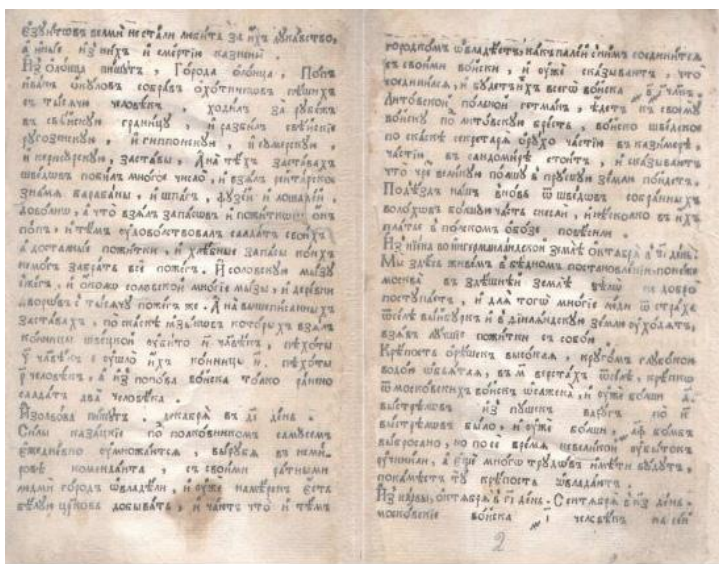 езуитовъ велми не стали любить за ихъ лукавство,
а иные из нихъ и смертію казнены
Из олонца пишутъ, Города олонца, Попъ
Иванъ окуловъ собравъ охотниковъ пѣшихъ
съ тысячю человѣкъ, ходилъ за рубежъ
въ свѣйскую границу, и разбилъ свѣйскіе
ругозенскую, и гиппонскую, и сумерскую,
и керисурскую, заставы, А на тѣхъ заставахъ
шведовъ побилъ многое число, и взялъ рейтарское
знамя барабаны, и шпагъ, фузей и лошадей,
доволно, а что взялъ запасовъ и пожитковъ онъ
попъ, и тѣмъ удовольствовалъ салдатъ своихъ
а досталные пожитки, и хлѣбные запасы коихъ
немогъ забрать всѣ пожегъ. И соловскую мызу
сжегъ, и около соловской многіе мызы, и деревни
дворовъ съ тысячу пожегъ же. А на вышеписанныхъ
заставахъ, по скаскѣ языковъ которыхъ взялъ
конницы швецкой убито н҃ члвѣкъ, пѣхоты
у҃ члвѣкъ а ушло ихъ конницы н҃. пѣхоты
р҃ человѣкъ, а из попова войска толко ранено
салдатъ два человѣка.
Изольова пишутъ. декабря въ д҃і день.
Силы казацкіе подполковникомъ самусемъ
ежедневно умножаются, вырубя въ неми
ровѣ коменданта, съ своими ратными
людми городъ овладѣли, и уже намѣрен есть
бѣлую цековь добывать, и чаютъ что и тѣмъ
городкомъ овладѣетъ, какъ палей сними соединится
съ своими войски, и уже сказываютъ, что
соединился, и будетъ ихъ всего войска в҃і члвкъ.
Литовской полевой гетманъ, ѣдетъ къ своему
войску по литовскую бресть, войско шведское
по скаскѣ секретаря орухо частію въ казимерѣ,
частію въ сандомирѣ стоитъ, и сказываютъ
что чре великую полшу в прускую землю пойдетъ.
Подъѣздъ нашъ вновь ѿ шведовъ собранныхъ
волоховъ болшую часть снесли, и несколко въ ихъ
платьѣ в полскомъ обозе повесили.
Из ніена во ингерманландской землѣ октября в s҃і день.
Мы здѣсь живемъ в бѣдномъ постановленіи понеже
москва въ здѣшней землѣ велми не добро
поступаетъ, и для того многіе люди ѿ страхе
ѿселѣ выйбуркъ и в ѳинляндскую землю уходятъ,
взявъ лутшіе пожитки съ собой
Крѣпость орѣшекъ высокая, кругомъ глубокой
водой объятая, въ м҃ верстахъ ѿселѣ, крѣпко
ѿ московскихъ войскъ осажена, и уже болши д҃.
выстрѣловъ из пушекъ вдругъ по к҃
выстрѣловъ было, и уже болши, аф҃ бомбъ
выбросано, но посе время невеликой убытокъ
учинили, а еще много трудовъ имѣти будутъ,
покамѣстъ ту крѣпость овладаютъ.
Из нарвы, октября в г҃і день. Сентября в к҃s день.
московскіе войска і҃ человѣкъ на сей
2